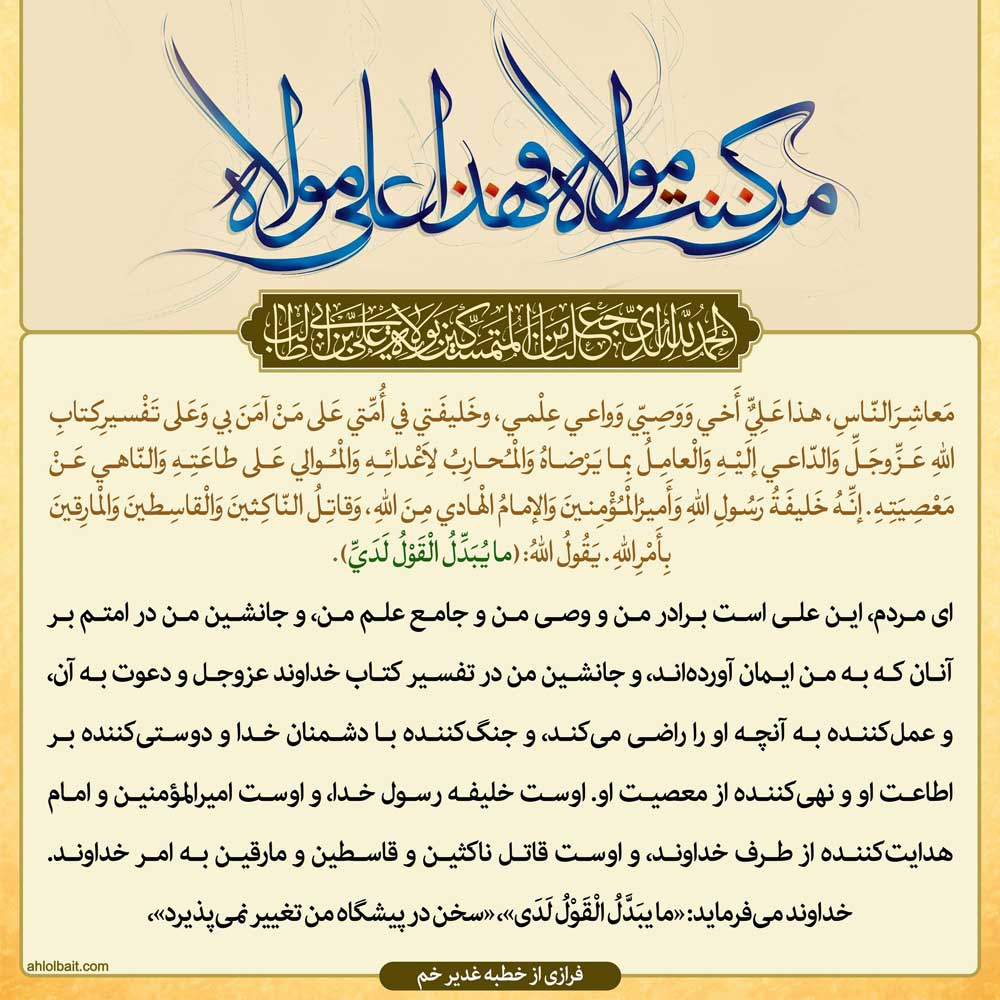 من کنت مولاه فهذا علی مولاه
الحمد لله الذی جعلنا من المتمسکین بولایة علی بن ابی طالب
مَعاشِرَ النّاسِ، هذا عَلِيٌّ أَخي وَوَصِيّي وَواعي عِلْمي، وخَليفَتي في أُمَّتي عَلى مَنْ آمَنَ بي وَعَلى تَفْسيرِ كِتابِ
اللهِ عَزَّوجَلَّ وَالدّاعي إلَيْهِ وَالْعامِلُ بِما يَرْضاهُ وَالْمُحارِبُ لِأعْدائِهِ وَالْمُوالي عَلى طاعَتِهِ وَالنّاهي عَنْ
مَعْصِيَتِهِ. إنَّهُ خَليفَةُ رَسُولِ اللهِ وَأَميرُالْمُؤْمِنينَ وَالإمامُ الْهادي مِنَ اللهِ، وَقاتِلُ النّاكِثينَ وَالْقاسِطينَ وَالْمارِقينَ
بِأَمْرِاللهِ. يَقُولُ اللهُ: (ما يُبَدِّلُ الْقَوْلُ لَدَيِّ).
ای مردم، این علی است برادر من و وصی من و جامع علم من، و جانشین من در امتم بر
آنان که به من ایمان آورده‌اند، و جانشین من در تفسیر کتاب خداوند عزوجل و دعوت به آن،
و عمل‌کننده به آنچه او را راضی می‌کند، و جنگ‌کننده با دشمنان خدا و دوستی‌کننده بر
اطاعت او و نهی‌کننده از معصیت او. اوست خلیفه رسول خدا، و اوست امیرالمؤمنین و امام
هدایت‌کننده از طرف خداوند، و اوست قاتل ناکثین و قاسطین و مارقین به امر خداوند.
خداوند می‌فرماید: «ما یبَدَّلُ الْقَوْلُ لَدَی»، «سخن در پیشگاه من تغییر نمی‌پذیرد»،
فرازی از خطبه غدیر خم
ahlolbait.com